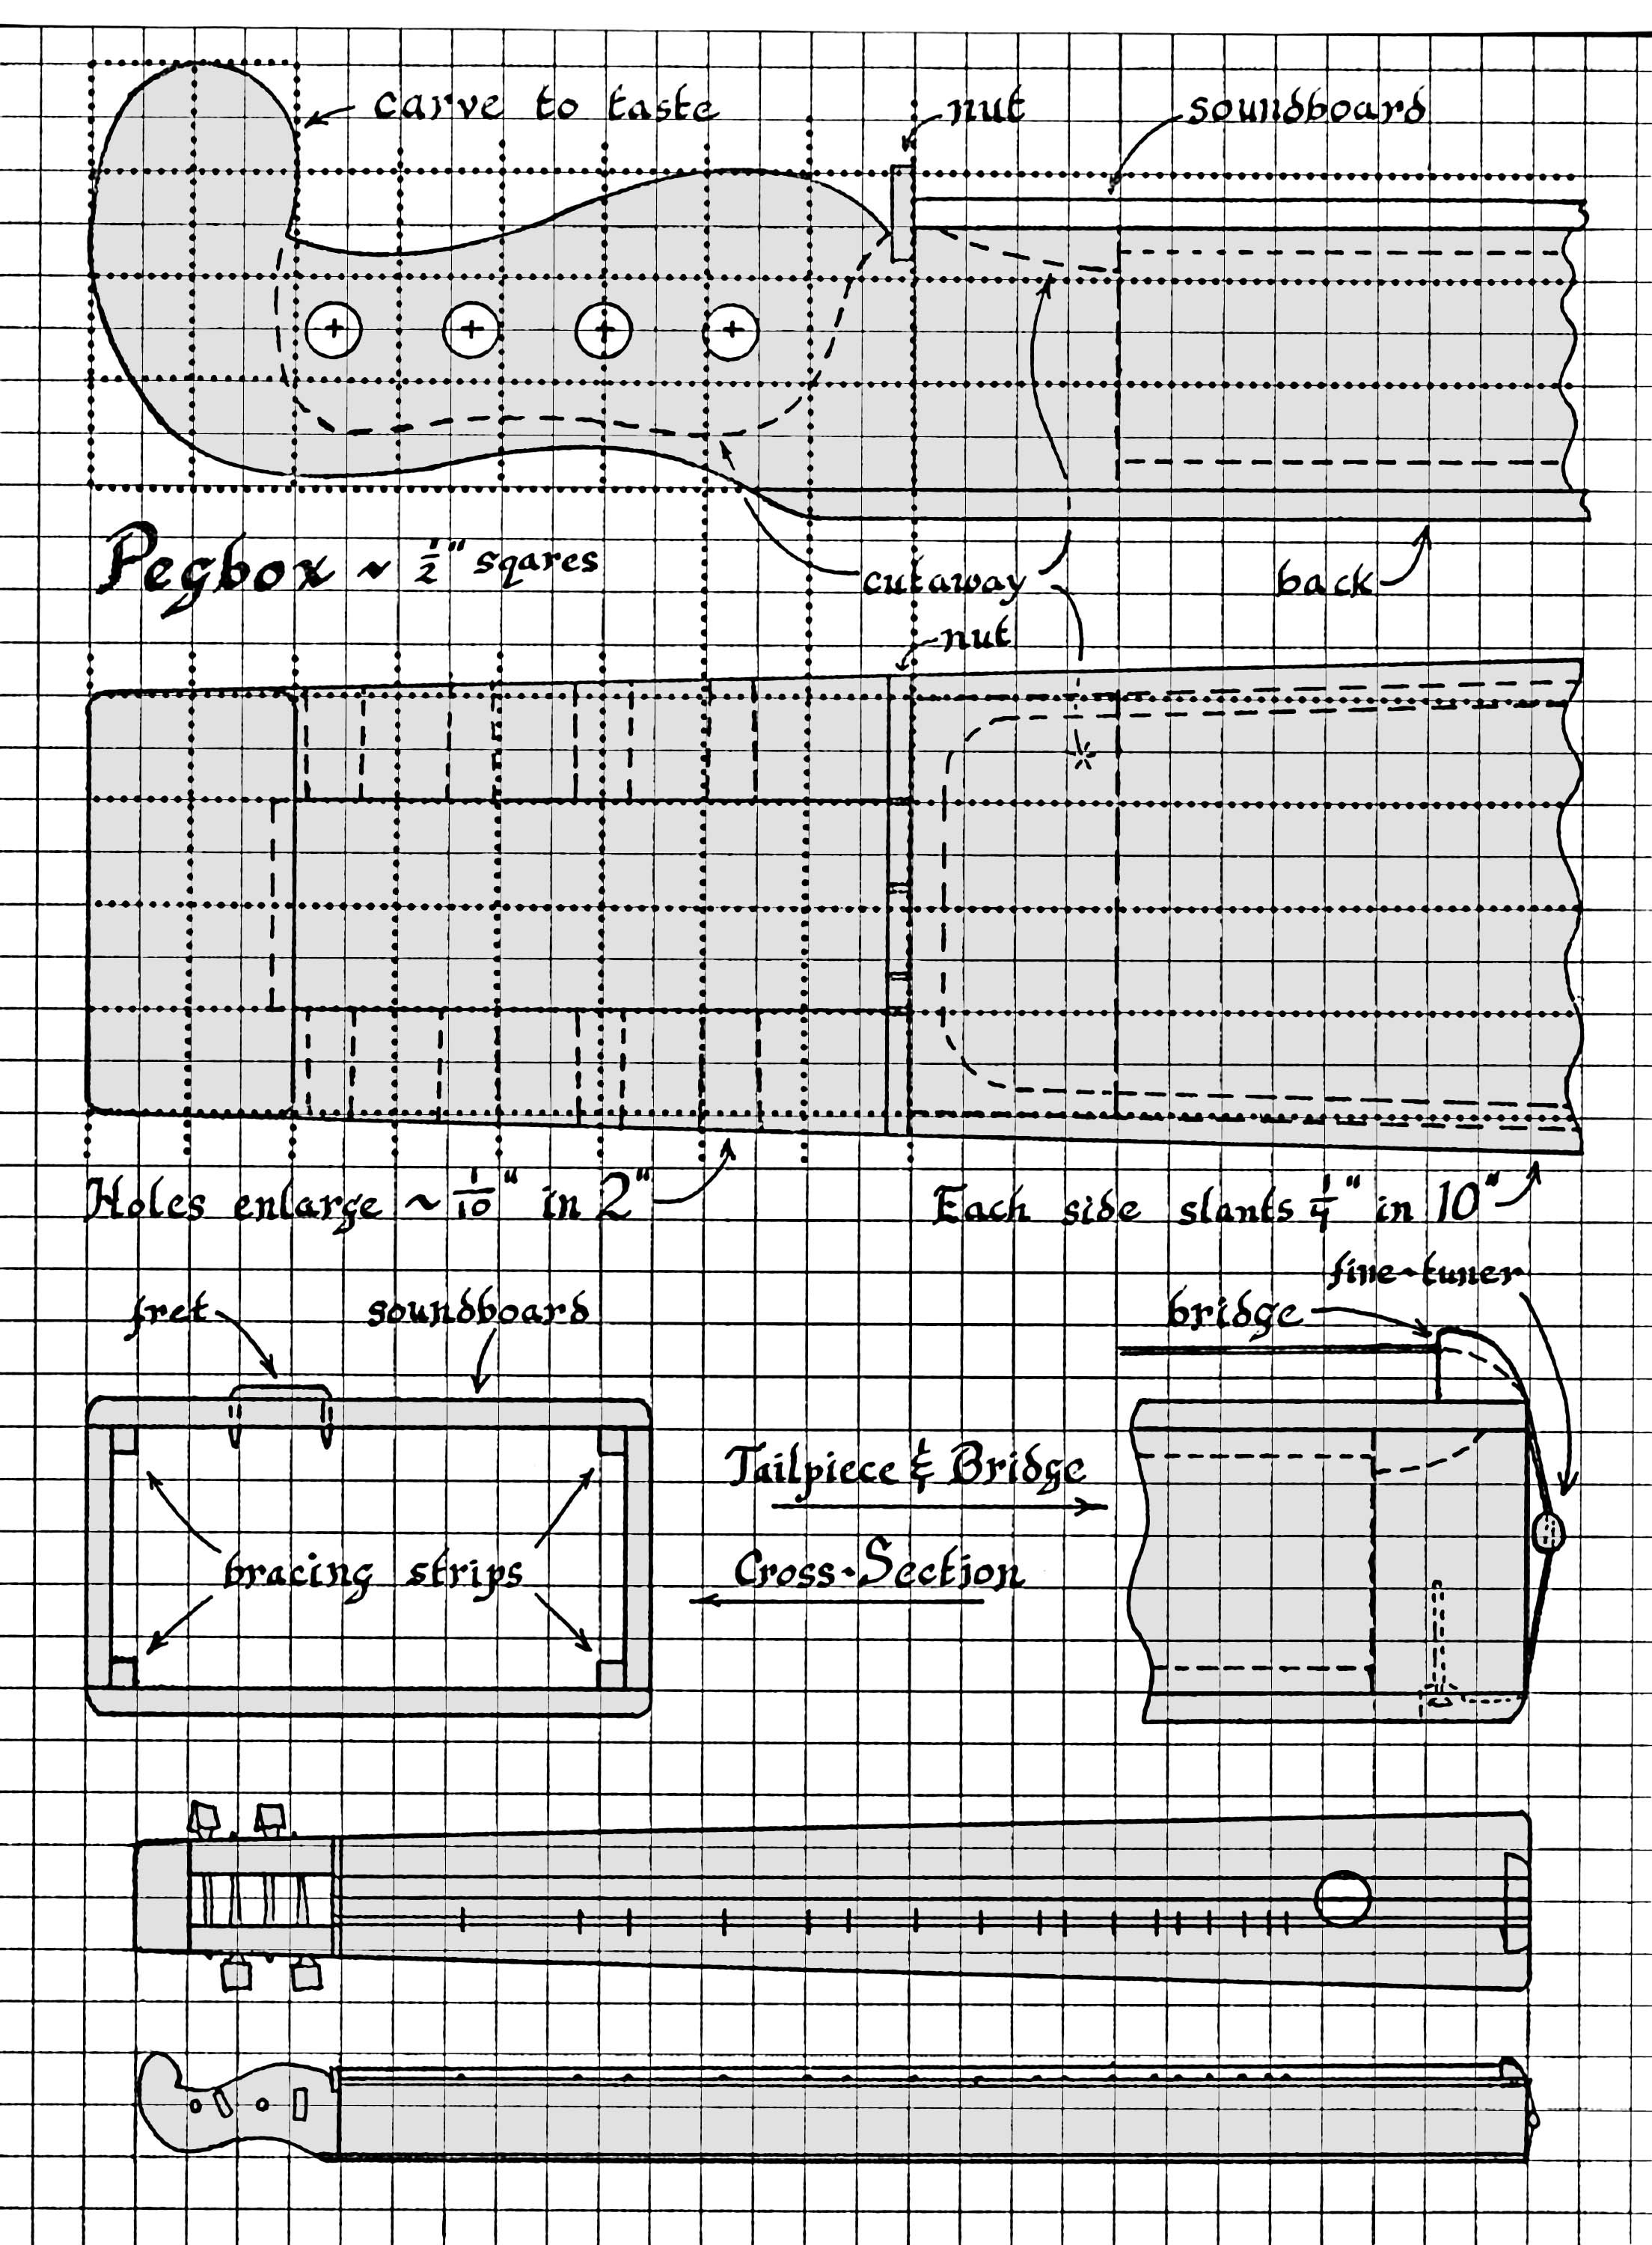 carve to taste
nut
soundboard
Pegbox ~ 1/2" sqares
cutaway
back
nut
Holes enlarge ~ 1/10" in 2"
Each side slants 1/4" in 10"
fine-tuner
fret
soundboard
bridge
Tailpiece & Bridge
bracing strips
Cross-Section